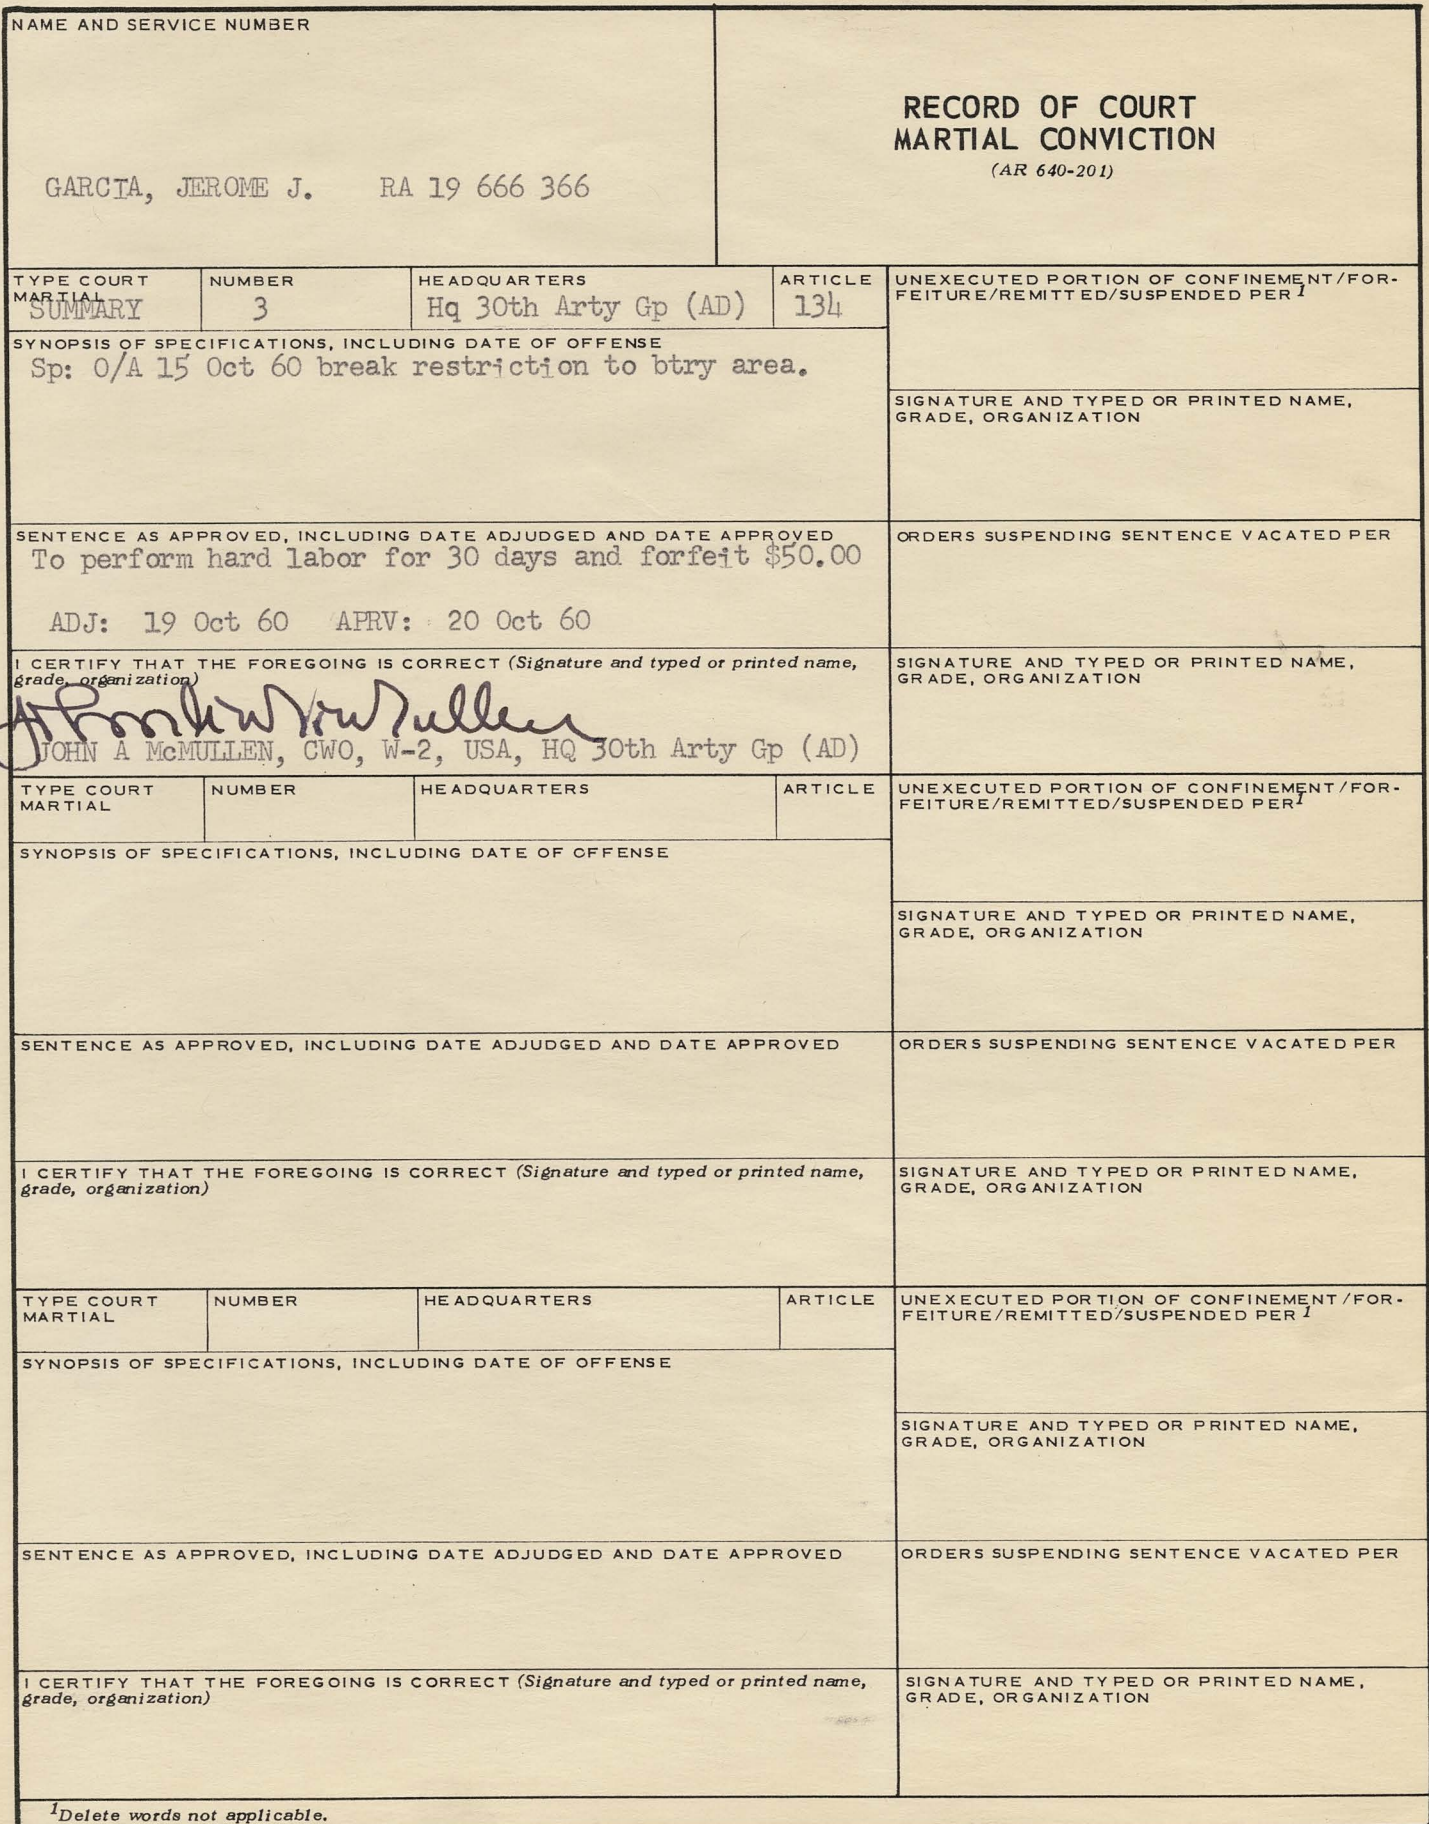 NAME AND SERVICE NUMBER
GARCIA, JEROME J. RA 19 666 366
RECORD OF COURT
MARTIAL CONVICTION
(AR 640-201)
TYPE COURT
MARTIAL
SUMMARY
NUMBER
3
HEADQUARTERS
Hq 30th Arty Gp (AD)
ARTICLE
134
UNEXECUTED PORTION OF CONFINEMENT/FOR-
FEITURE/REMITTED/SUSPENDED PER 1
SYNOPSIS OF SPECIFICATIONS, INCLUDING DATE OF OFFENSE
Sp: O/A 15 Oct 60 break restriction to btry area.
SIGNATURE AND TYPED OR PRINTED NAME,
GRADE, ORGANIZATION
SENTENCE AS APPROVED, INCLUDING DATE ADJUDGED AND DATE APPROVED
To perform hard labor for 30 days and forfeit $50.00
ADJ: 19 Oct 60 APRV: 20 Oct 60
ORDERS SUSPENDING SENTENCE VACATED PER
I CERTIFY THAT THE FOREGOING IS CORRECT (Signature and typed or printed name,
grade, organization)
JOHN A McMULLEN, CWO, W-2, USA, HQ 30th Arty Gp (AD)
SIGNATURE AND TYPED OR PRINTED NAME,
GRADE, ORGANIZATION
TYPE COURT
MARTIAL
NUMBER
HEADQUARTERS
ARTICLE
UNEXECUTED PORTION OF CONFINEMENT/FOR-
FEITURE/REMITTED/SUSPENDED PER 1
SYNOPSIS OF SPECIFICATIONS, INCLUDING DATE OF OFFENSE
SIGNATURE AND TYPED OR PRINTED NAME,
GRADE, ORGANIZATION
SENTENCE AS APPROVED, INCLUDING DATE ADJUDGED AND DATE APPROVED
ORDERS SUSPENDING SENTENCE VACATED PER
I CERTIFY THAT THE FOREGOING IS CORRECT (Signature and typed or printed name,
grade, organization)
SIGNATURE AND TYPED OR PRINTED NAME,
GRADE, ORGANIZATION
TYPE COURT
MARTIAL
NUMBER
HEADQUARTERS
ARTICLE
UNEXECUTED PORTION OF CONFINEMENT/FOR-
FEITURE/REMITTED/SUSPENDED PER 1
SYNOPSIS OF SPECIFICATIONS, INCLUDING DATE OF OFFENSE
SIGNATURE AND TYPED OR PRINTED NAME,
GRADE, ORGANIZATION
SENTENCE AS APPROVED, INCLUDING DATE ADJUDGED AND DATE APPROVED
ORDERS SUSPENDING SENTENCE VACATED PER
I CERTIFY THAT THE FOREGOING IS CORRECT (Signature and typed or printed name,
grade, organization)
SIGNATURE AND TYPED OR PRINTED NAME,
GRADE, ORGANIZATION
1Delete words not applicable.